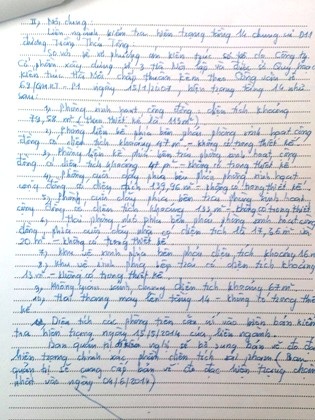 II, Nội dung
Liên ngành kiểm tra hiện trạng tầng 14 chung cư D11
đường Trần Thái Tông.
So với vẽ phương án kiến trúc số do Công ty
Cổ phần xây dựng số 3 Hà Nội lập và được sở Quy hoạch
kiến trúc Hà Nội chấp thuận kèm theo Công văn số
ngày 15/1/2001, hiện trạng tầng 14 như
sau:
1, Phòng sinh hoạt cộng đồng diện tích khoảng
78,58 m² (theo thiết kế là 113m²)
2, Phòng liền kề phía bên phải phòng sinh hoạt cộng
đồng có diện tích khoảng 47 m² - không có trong thiết kế
3, Phòng liền kề phía bên trái phòng sinh hoạt cộng
đồng có diện tích khoảng 47 m² - không có trong thiết kế.
4, Phòng cuối dãy phía bên phải phòng sinh hoạt
cộng đồng có diện tích 139,96 m² - không có trong thiết kế.
5, Phòng cuối dãy phía bên trái phòng sinh hoạt
cộng đồng có diện tích khoảng 139 m² - không có trong thiết kế
6, Hai phòng nhỏ phía bên phải phòng sinh hoạt cộng
đồng, phía cuối có diện tích là 17,66 m² và
20 m² - không có trong thiết kế.
7, Khu vệ sinh phía bên phải diện tích khoảng 16 m²
8, Khu vệ sinh phía bên trái có diện tích khoảng
15 m² - không có trong thiết kế.
9, Không quán sảnh, chung diện tích khoảng 67 m².
10, Hai thang máy lên tầng 14 - không có trong thiết
kế.
Diện tích các phòng trên căn cứ vào biên bản kiểm
tra hiện trạng ngày 15/5/2014 của liên ngành.
Ban quản trị đề nghị sẽ bổ sung bản vẽ đo đạc
hiện trạng chính xác phần diện tích sai phạm (Ban
quản trị sẽ cung cấp bản vẽ đo đạc hiện trạng chậm
nhất vào ngày 04/6/2014)